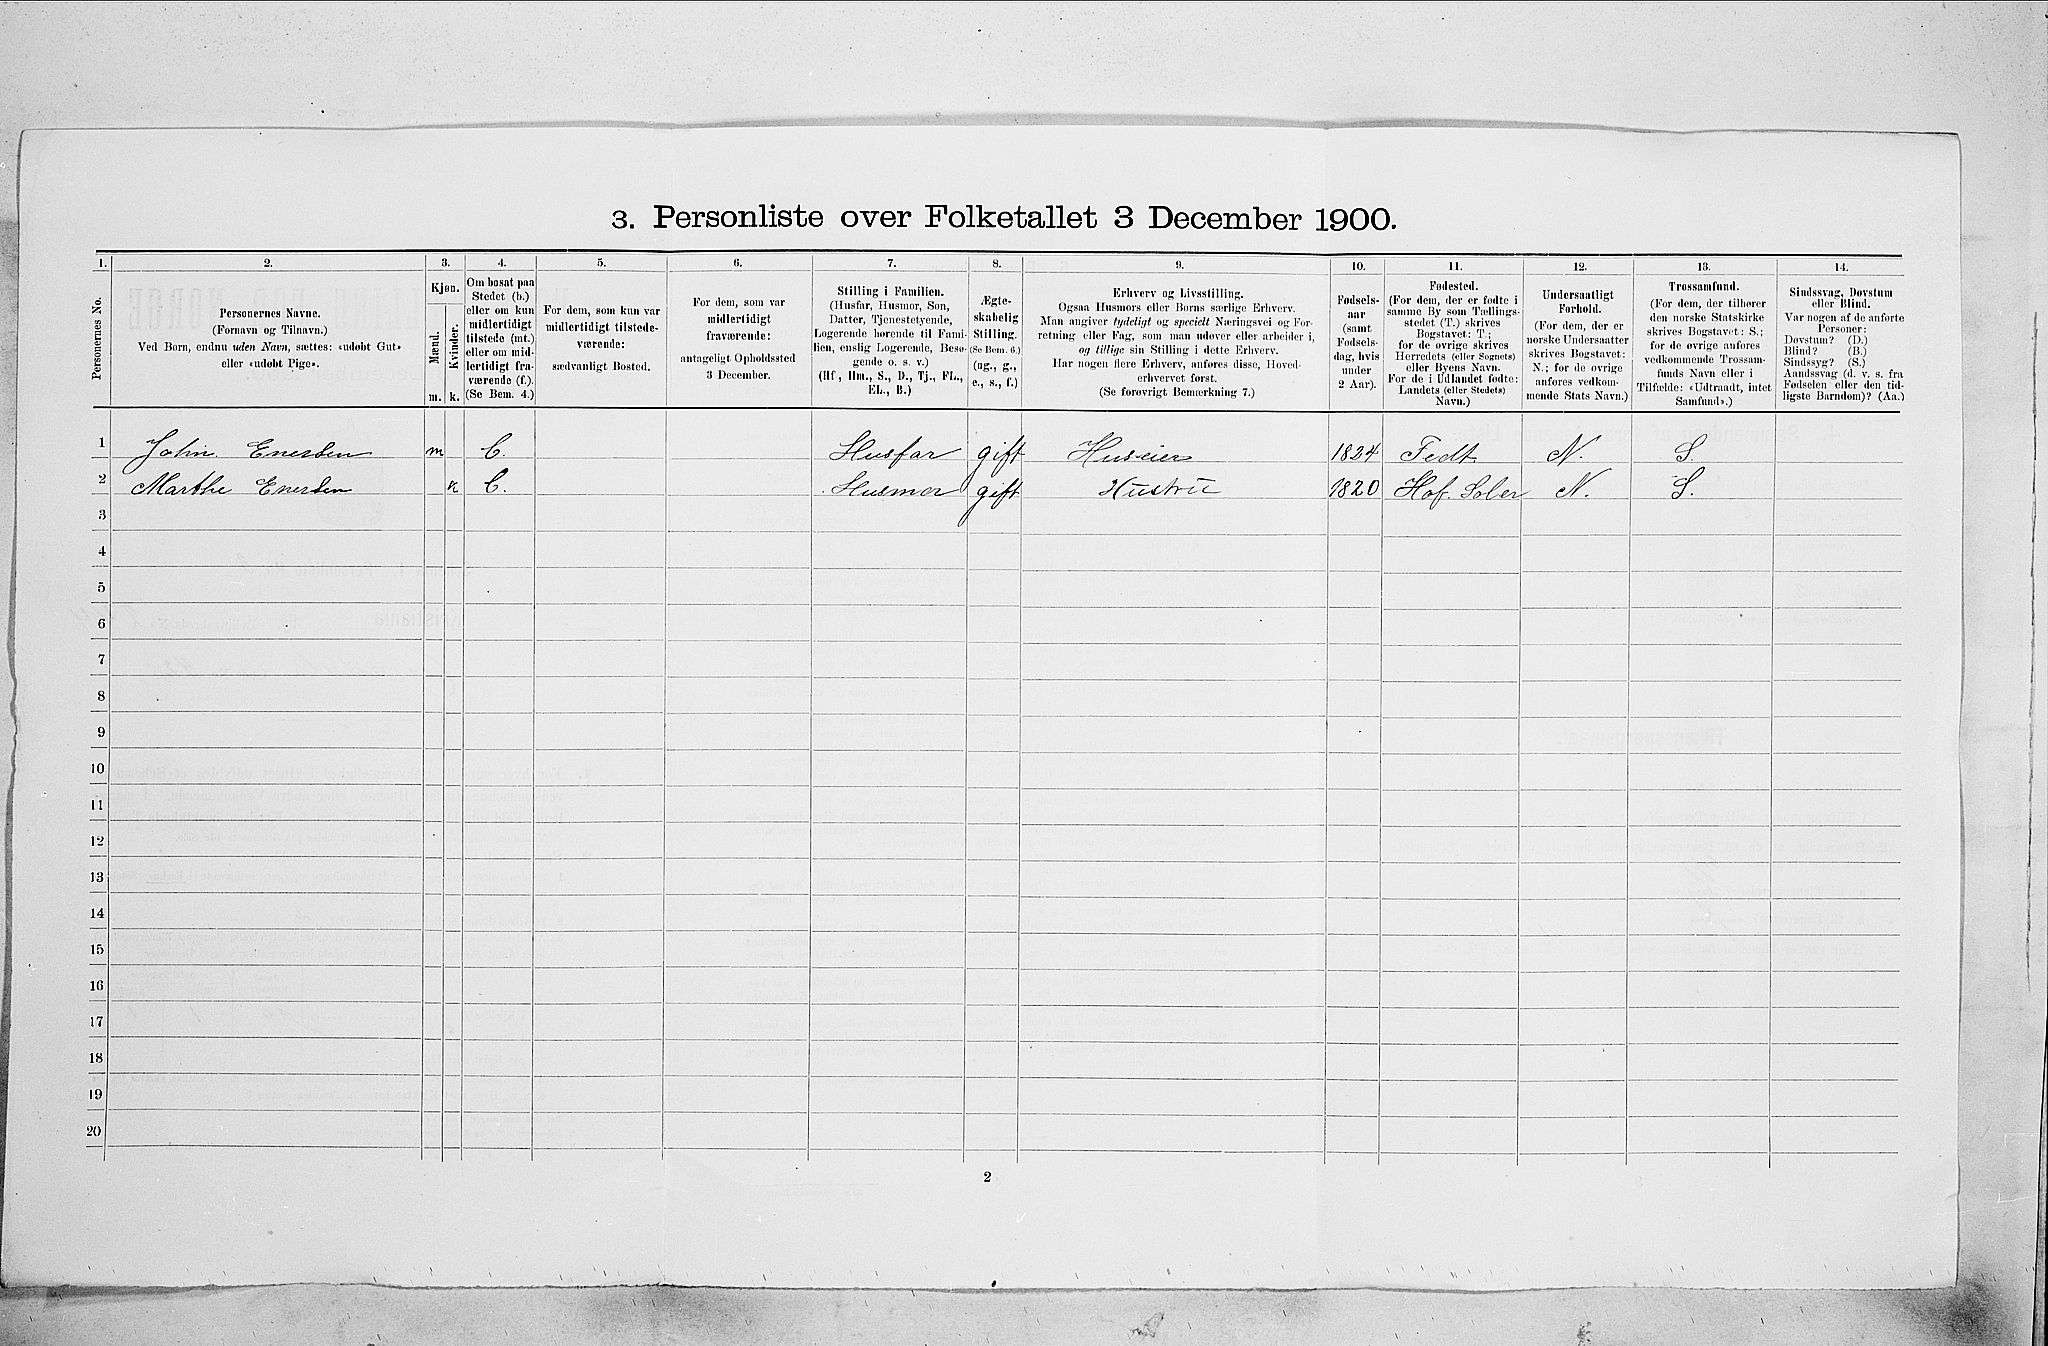 3. Personliste over Folketallet 3 December 1900.
1. 2. 3. 4. 5. 6. 7. 8. 9. 10. 11. 12. 13. 14.
Personernes No.
Personernes Navne.
(Fornavn og Tilnavn.)
Ved Børn, endnu uden Navn, sættes: «udøbt Gut»
eller «udøbt Pige».
Kjøn.
Mænd.
Kvinder.
m. k.
Om bosat paa
Stedet (b.)
eller om kun
midlertidigt
tilstede (mt.)
eller om mid-
lertidigt fra-
værende (f.).
(Se Bem. 4.)
For dem, som kun var
midlertidigt tilstede-
værende:
sædvanligt Bosted.
For dem, som var
midlertidigt
fraværende:
antageligt Opholdssted
3 December.
Stilling i Familien.
(Husfar, Husmor, Søn,
Datter, Tjenestetyende,
Logerende hørende til Fami-
lien, enslig Logerende, Besø-
gende o. s. v.)
(Hf., Hm., S., D., Tj., FL.,
EL., B.)
Ægte-
skabelig
Stilling.
(Se Bem. 6.)
(ug., g.,
e., s., f.)
Erhverv og Livsstilling.
Ogsaa Husmors eller Børns særlige Erhverv.
Man angiver tydeligt og specielt Næringsvei og For-
retning eller Fag, som man udøver eller arbeider i,
og tillige sin Stilling i dette Erhverv.
Har nogen flere Erhverv, anføres disse, Hoved-
erhvervet først.
(Se forøvrigt Bemærkning 7.)
Fødsels-
aar
(samt
Fødsels-
dag, hvis
under
2 Aar).
Fødested.
(For dem, der er fødte i
samme By som Tællings-
stedet (T.) skrives
Bogstavet: T;
for de øvrige skrives
Herredets (eller Sognets)
eller Byens Navn.
For de i Udlandet fødte:
Landets (eller Stedets)
Navn.)
Undersaatligt
Forhold.
(For dem, der er
norske Undersaatter
skrives Bogstavet:
N.; for de øvrige
anføres vedkom-
mende Stats Navn.)
Trossamfund.
(For dem, der tilhører
den norske Statskirke
skrives Bogstavet: S.;
for de øvrige anføres
vedkommende Trossam-
funds Navn eller i
Tilfælde: «Udtraadt, intet
Samfund».)
Sindssvag, Døvstum
eller Blind.
Var nogen af de anførte
Personer:
Døvstum? (D.)
Blind? (B.)
Sindssyg? (S.)
Aandssvag (d. v. s. fra
Fødselen eller den tid-
ligste Barndom)? (Aa.)
1 John Enersen m b. Husfar gift Huseier 1824 Fedt N. S.
2 Marthe Enersen k b. Husmor gift Hustru 1820 Hof. Soler N. S.
3
4
5
6
7
8
9
10
11
12
13
14
15
16
17
18
19
20
2